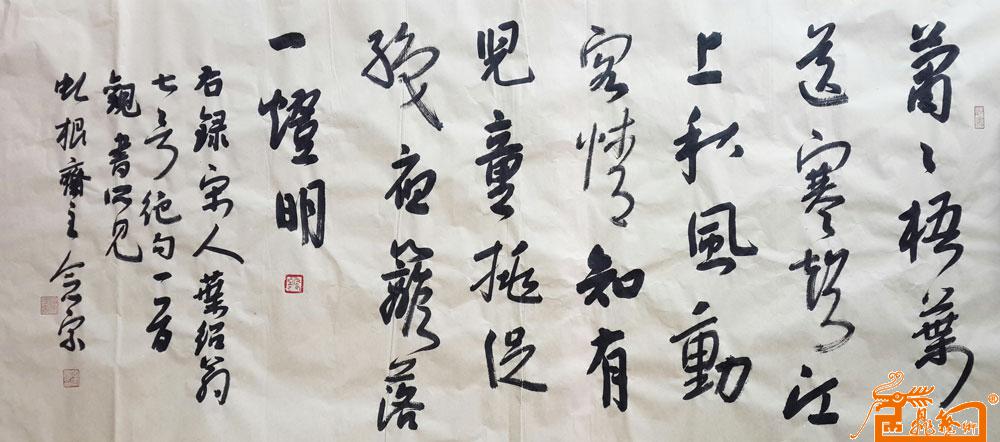 蕭〻梧葉
送寒聲江
上秋風動
客情知有
兒童挑促
織夜籬落
一燈明
右録宋人葉紹翁
七言绝句一首
觀書所見
虬根齋主念宗